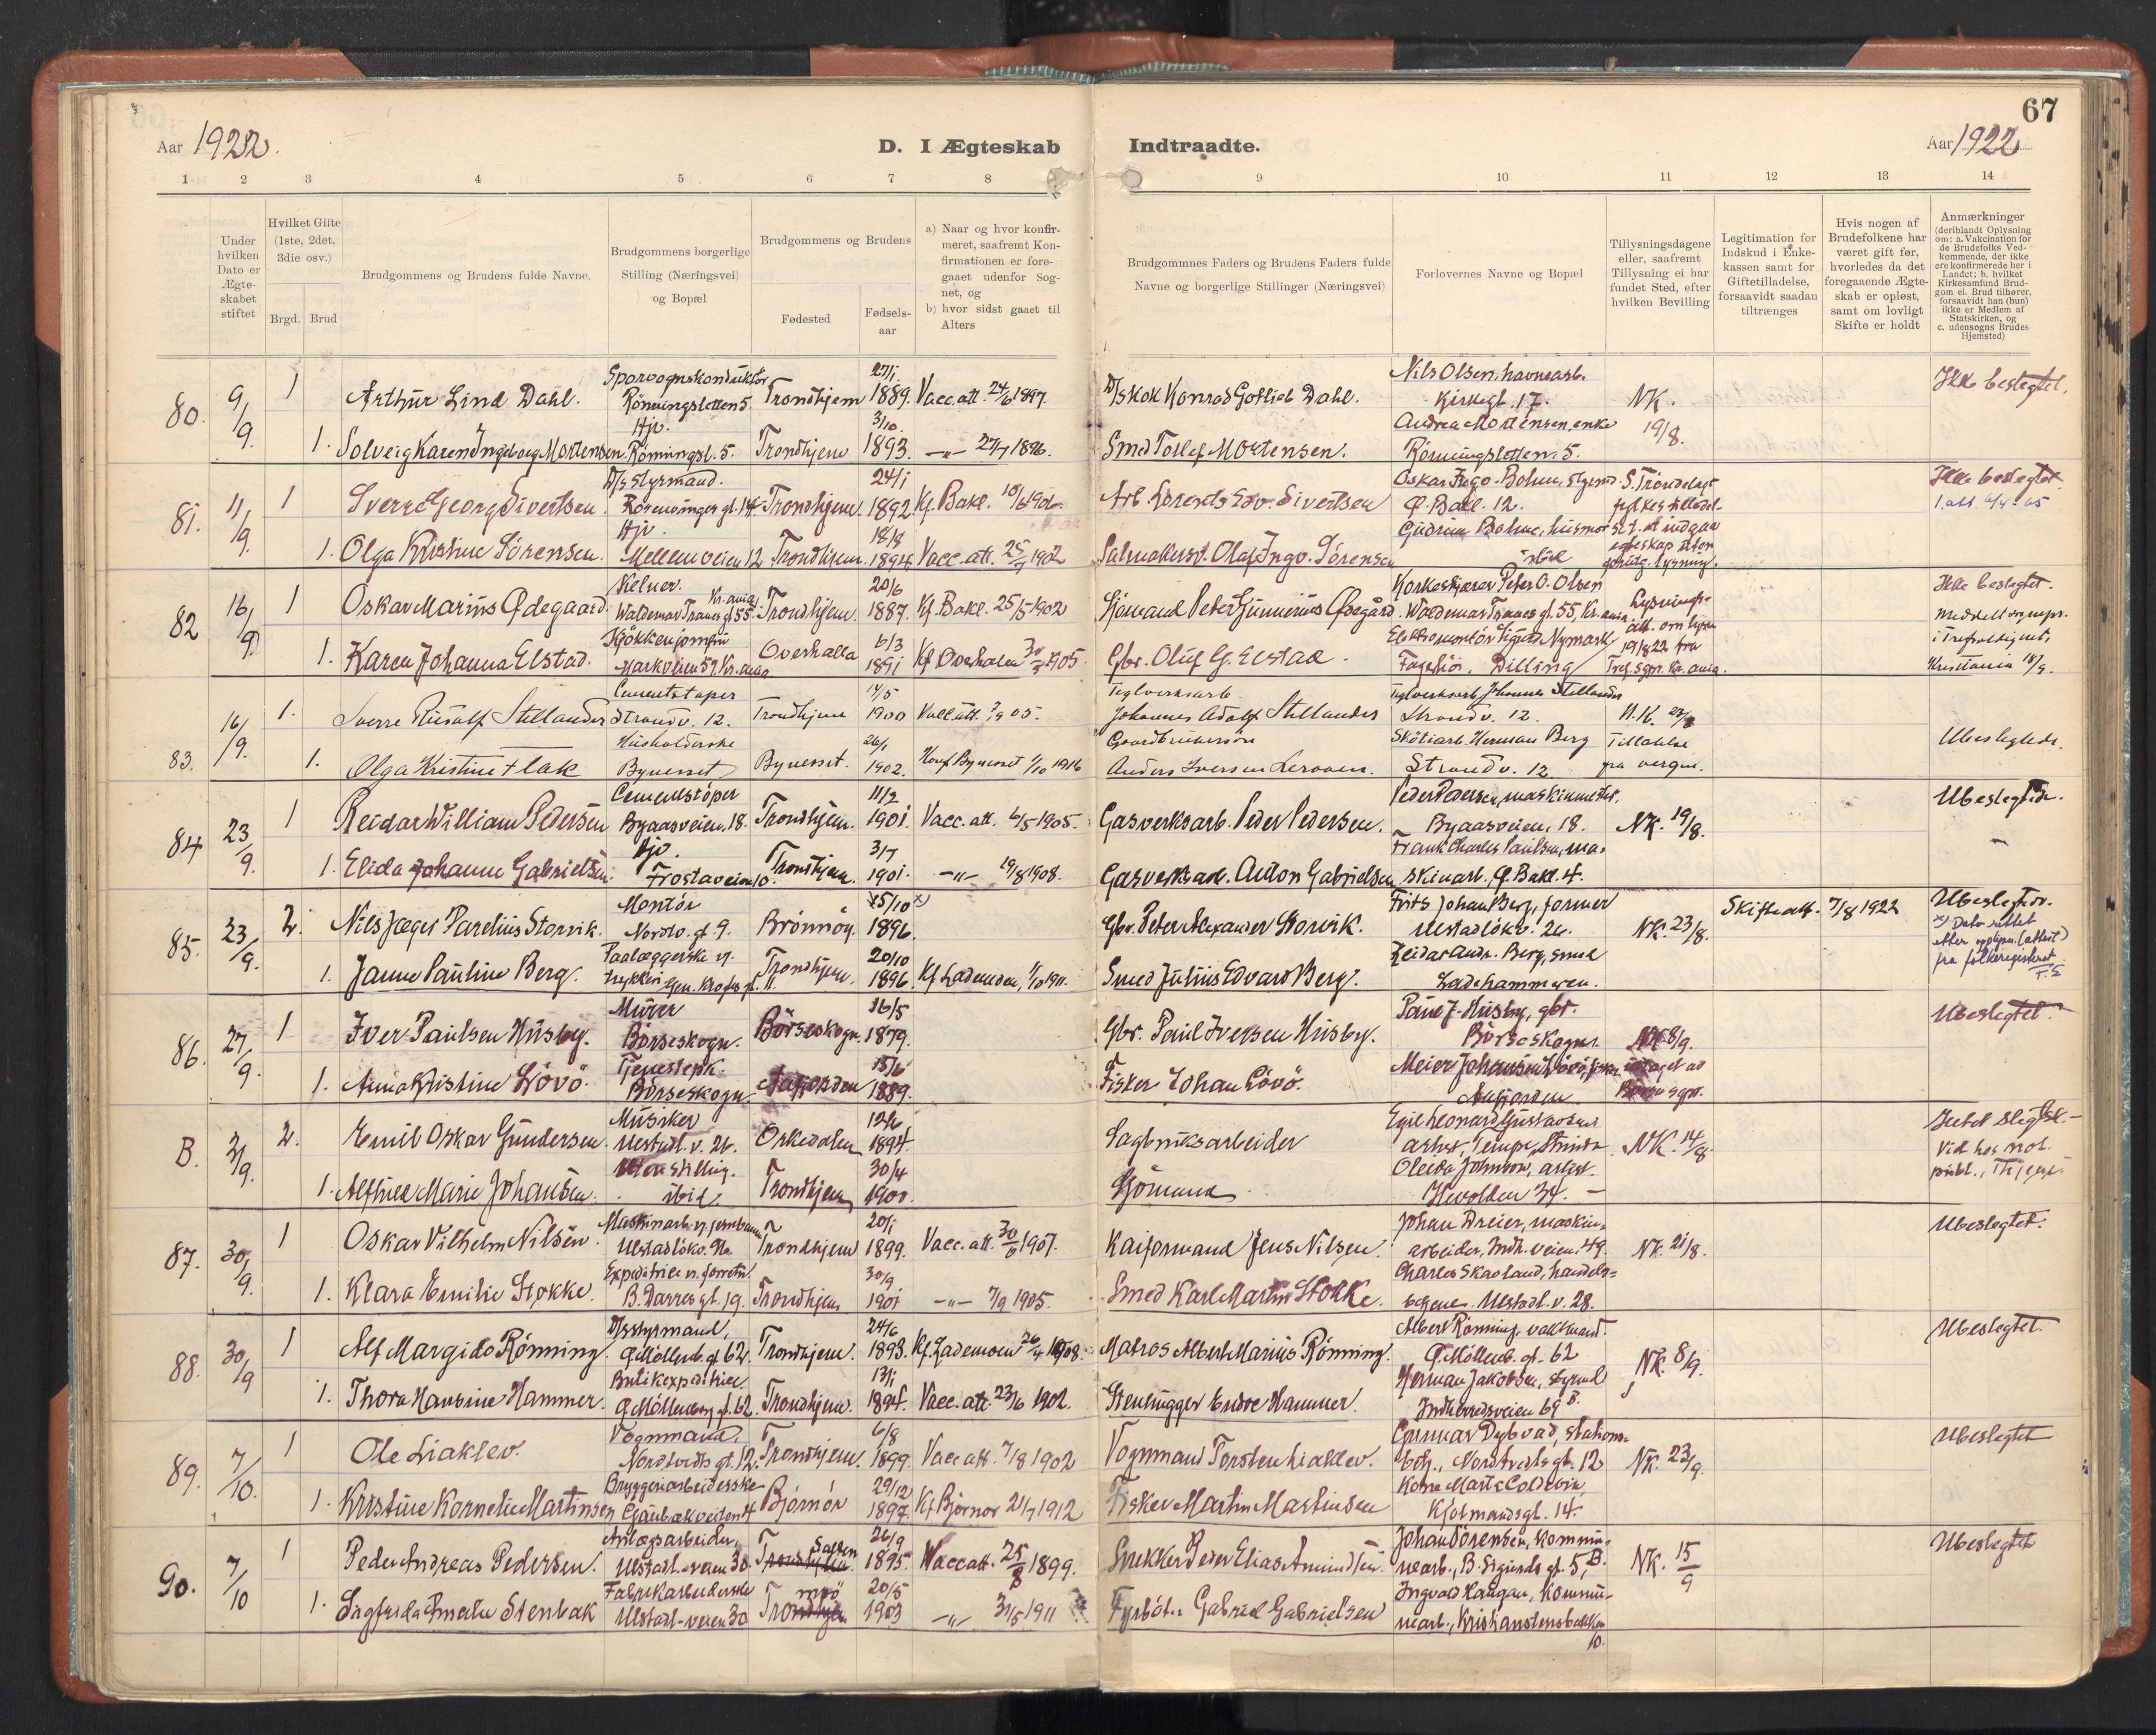 67
Aar 1922.
D. I Ægteskab
Indtraadte.
Aar 1922
1 2 3 4 5 6 7 8 9 10 11 12 13 14
Under hvilken Dato er Ægte-skabet stiftet
Hvilket Gifte (1ste, 2det, 3die osv.)
Brgd. Brud
Brudgommens og Brudens fulde Navne.
Brudgommens borgerlige
Stilling (Næringsvei)
og Bopæl
Brudgommens og Brudens
Fødested
Fødsels-
aar
a) Naar og hvor konfir-
meret, saafremt Kon-
firmationen er fore-
gaaet udenfor Sog-
net, og
b) hvor sidst gaaet til
Alters
Brudgommnes Faders og Brudens Faders fulde
Navne og borgerlige Stillinger (Næringsvei)
Forlovernes Navne og Bopæl
Tillysningsdagene
eller, saafremt
Tillysning ei har
fundet Sted, efter
hvilken Bevilling
Legitimation for
Indskud i Enke-
kassen samt for
Giftetilladelse,
forsaavidt saadan
tiltrænges
Hvis nogen af
Brudefolkene har
været gift før,
hvorledes da det
foregaaende Ægte-
skab er opløst,
samt om lovligt
Skifte er holdt
Anmærkninger
(deriblandt Oplysning
om: a. Vakcination for
de Brudefolks Ved-
kommende, der ikke
ere konfirmerede her i
Landet; b. hvilket
Kirkesamfund Brud-
gom el. Brud tilhører,
forsaavidt han (hun)
ikke er Medlem af
Statskirken, og
c. udensogns Brudes
Hjemsted)
80. 9/9. 1 Arthur Lind Dahl. Sporvognskonduktør Rönningsletten 5. Trondhjem 27/1 1889. Vacc. att. 24/6 1897. D/skok Konrad Gotlieb Dahl. Nils Olsen, havnearb. Kirkegt. 17. NK. 19/8. Ikke beslegtet.
1. Solveig Karen Ingeborg Mortensen. Hjv. Rönningsl. 5. Trondhjem 3/10 1893. —"— 27/7 1896. Smed Tollef Mortensen. Andrea Mortensen, enke Rönningsletten 5.
81. 11/9. 1 Sverre Georg Sivertsen. D/s styrmand. Rosenvinges gt. 14 Trondhjem. 24/1 1892 Kf. Bakl. 10/6 1906 Arb. Lorents Edv. Sivertsen Oskar Ingo. Bohne, styrmd. Ø. Bakl. 12. S. Trøndelags fylkes tilladel- Ikke beslegtet
1. Olga Kristine Sörensen. Hjv. Mellemveien 12 Trondhjem. 18/8 1894. Vacc. att. 25/7 1902 Salmakersv. Olaf Ingv. Sörensen Gudrun Bohne, husmor ibid se t. at indgaa egteskap uten lysning.
82 16/9. 1 Oskar Marius Ødegaard. Kelner. Waldemar Tranes gt. 55. Kr.ania Trondhjem. 20/6 1887. Kf. Bakl. 25/5 1902 Sjömand Peter Gunnerius Ødegård. Korkeskjærer Peter O. Olsen Waldemar Tranes gt. 55, Kr.ania Lysnings- att. om lysn 19/8 22 fra Tref. sgn. Kr.ania. Ikke beslegtet. Meddelt sognepr. i Trefoldighet, Kristiania 18/9.
1. Karen Johanna Elstad. Markveien 57. Kr.ania Overhalla 6/3 1891 Kf. Overhalla 1905. Gbr. Oluf G. Elstad. Elektromontör Sigurd Nymark Fageliö, Dilling
83. 16/9. 1. Sverre Rudolf Stillander Cementstøper Strandv. 12. Trondhjem 14/5 1900 Vacc. att. 05. Teglverksarb. Johannes Adolf Stillander Teglverksarb. Johannes Stillander Strandv. 12. N.K. Ubeslegtede.
1. Olga Kristine Flak Husholderske Bynesset Bynesset. 26/1 1902. Konf. Bynesset 1/10 1916 Gaardbrukersön Anders Iversen Skötiarb. Herman Berg Strandv. 12 Tilladelse fra vergen.
84 23/9. 1 Reidar William Pedersen Cementstöper Byaasveien 18. Trondhjem. 11/2 1901. Vacc. att. 6/5 1905. Gasverksarb. Peder Pedersen. Peder Pedersen, maskinmester. Byaasveien, 18. NK. 19/8. Ubeslegtede.
1. Elida Johanne Gabrielsen. Hjv. Frostaveien 10. Trondhjem. 3/7 1901. —"— 19/8 1908. Gasverksarb. Anton Gabrielsen Frank Charles Paulsen, ma- skinarb., Ø. Bakl. 4.
85. 23/9. 2. Nils Jæger Parelius Storvik. Montör Nordv. gt. 9. Brönnöy 15/10 x) 1896. Gbr. Peter Alexander Storvik. Frits Johan Berg, former Ulstadlökv. 26. NK. 23/8. Skifteatt. 7/8 1922 Ubeslegtede. x) Dato rettet efter opplysn. (attest) fra folkeregisteret. F.S
1. Janna Pauline Berg. Paalæggerske v. trykkeri Gen. Krohgs gt. 11 Trondhjem 20/10 1896. Kf. Lademoen, 1/10 1911. Smed Julius Edvard Berg. Reidar Andr. Berg, smed Ladehammeren.
86. 27/9. 1 Iver Paulsen Husby. Murer Börseskogn. Börseskogn. 16/5 1879. Gbr. Paul Iversen Husby. Paul J. Husby, gbr. Börseskogn. NK 8/9. Ubeslegtet.
1. Anna Kristine Lövö. Tjenestepk. Börseskogn. Aafjorden 15/6 1889. Fisker Johan Lövö. Meier Johansen Lövö, fisker Aafjorden. Börse sgn.
B. 2/9. 2. Emil Oskar Gundersen. Musiker Ulstadl. v. 26. Orkedalen 12/6 1894. Sagbruksarbeider Egil Leonard Gustavsen arbst., Tempe, Strinda NK. 14/8. Intet slegtsk. Vid hos not. publ., Thjem.
1. Alfhild Marie Johansen. Uten stilling. ibid. Trondhjem 30/4 1900. Sjömand Oleida Johnson, arbst. Hvolden 34.
87. 30/9. 1 Oskar Vilhelm Nilsen. Maskinarb. v. jernbanen Ulstadlökv. Trondhjem 20/1 1899. Vacc. att. 30/6 1907. Kaiformand Jens Nilsen. Johan Dreier, maskin- arbeider, Indh. veien. 49. NK. 21/8. Ubeslegtet.
1. Klara Emilie Stokke. Expeditrice v. forretn. B. Darres gt. 19. Trondhjem 30/9 1901 —"— 7/9 1905. Smed Karl Martin Stokke. Charles Skavland, handels- betjent. Ulstadl. v. 28.
88. 30/9 1 Alf Margido Rönning. D/s styrmand, Ø. Möllenb. gt. 62. Trondhjem. 24/6 1893. Kf. Lademoen 26/4 1908. Matros Albert Marius Rönning. Albert Rönning, vaktmand. Ø. Möllenb. gt. 62 NK. 8/9. Ubeslegtet.
1. Thora Hansine Hammer. Butikexpeditrice. Ø. Möllenberg gt. 62. Trondhjem. 13/1 1894. Vacc. att. 23/6 1902. Stenhugger Endre Hammer. Herman Jakobsen, styrmd Indherredsveien 69 B.
89. 7/10. 1 Ole Liaklev. Vognmand. Nordtvedts gt. 12. Trondhjem. 6/8 1899. Vacc. att. 7/8 1902 Vognmand Torsten Liaklev. Gunnar Dybvad, stations- betj., Nordtvedtsgt. 12 NK. 23/9. Ubeslegtet
1. Kristine Kornelie Martinsen Bryggeriarbeiderske Gaubækveiten 4 Björnör 29/12 1897. Kf. Bjørnør 21/7 1912 Fisker Martin Martinsen Kone Marta Coldevin Kjölmandsgt. 14.
90. 7/10 1 Peder Andreas Pedersen. Anlægsarbeider, Ulstadl.-veien 30. Trondhjem Salten 26/9 1895. Vacc att. 25/8 1899. Snekker Peder Elias Amundsen. Johan Sörensen, kommu- nearb., B. Sigurds gt. 5, B. NK. 15/9 Ubeslegtet
1. Sigfrida Amalie Stenbak Fabrikarbeiderske Ulstadl-veien 30 Tromsö 20/5 1903 —"— 31/5 1911 Fyrböter Gabriel Gabrielsen Ingvald Haugan, kommu- nearb., Kristianstensbakken 10.